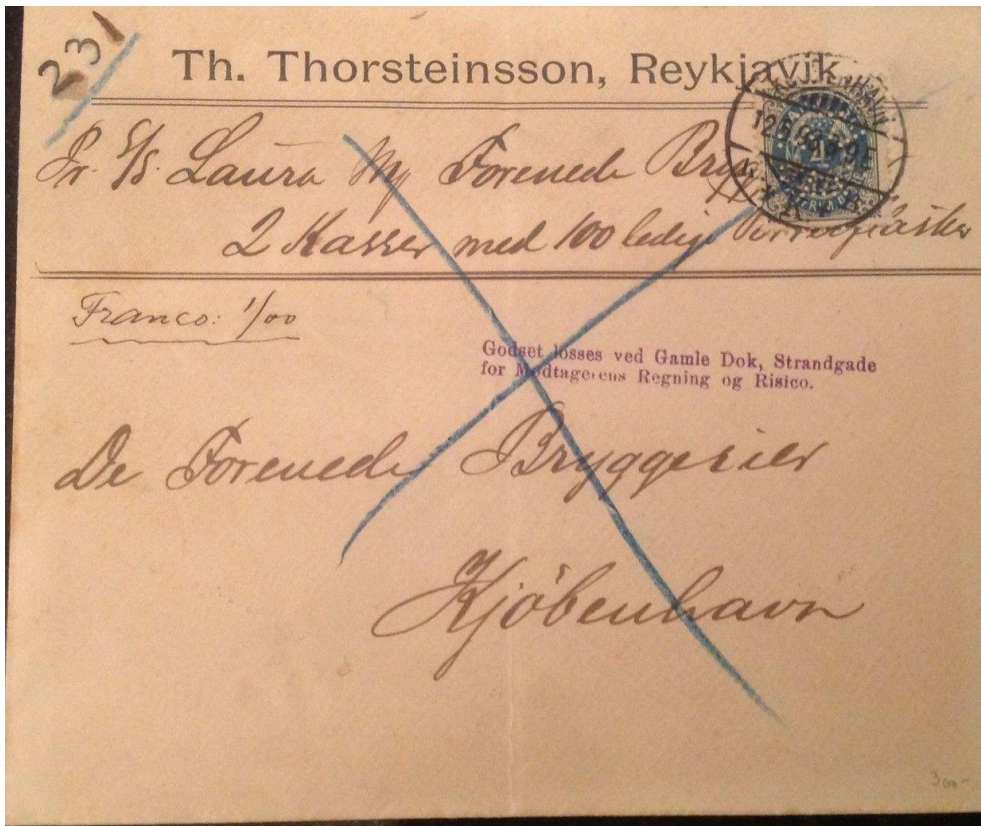 231
Th. Thorsteinsson, Reykjavik
Pr. S/S. Laura Forenede
2 Kasser med 100 ledige
Franco: 1/00
Godset losses ved Gamle Dok, Strandgade
for Modtagerens Regning og Risico.
De Forenede Bryggerier
Kjöbenhavn